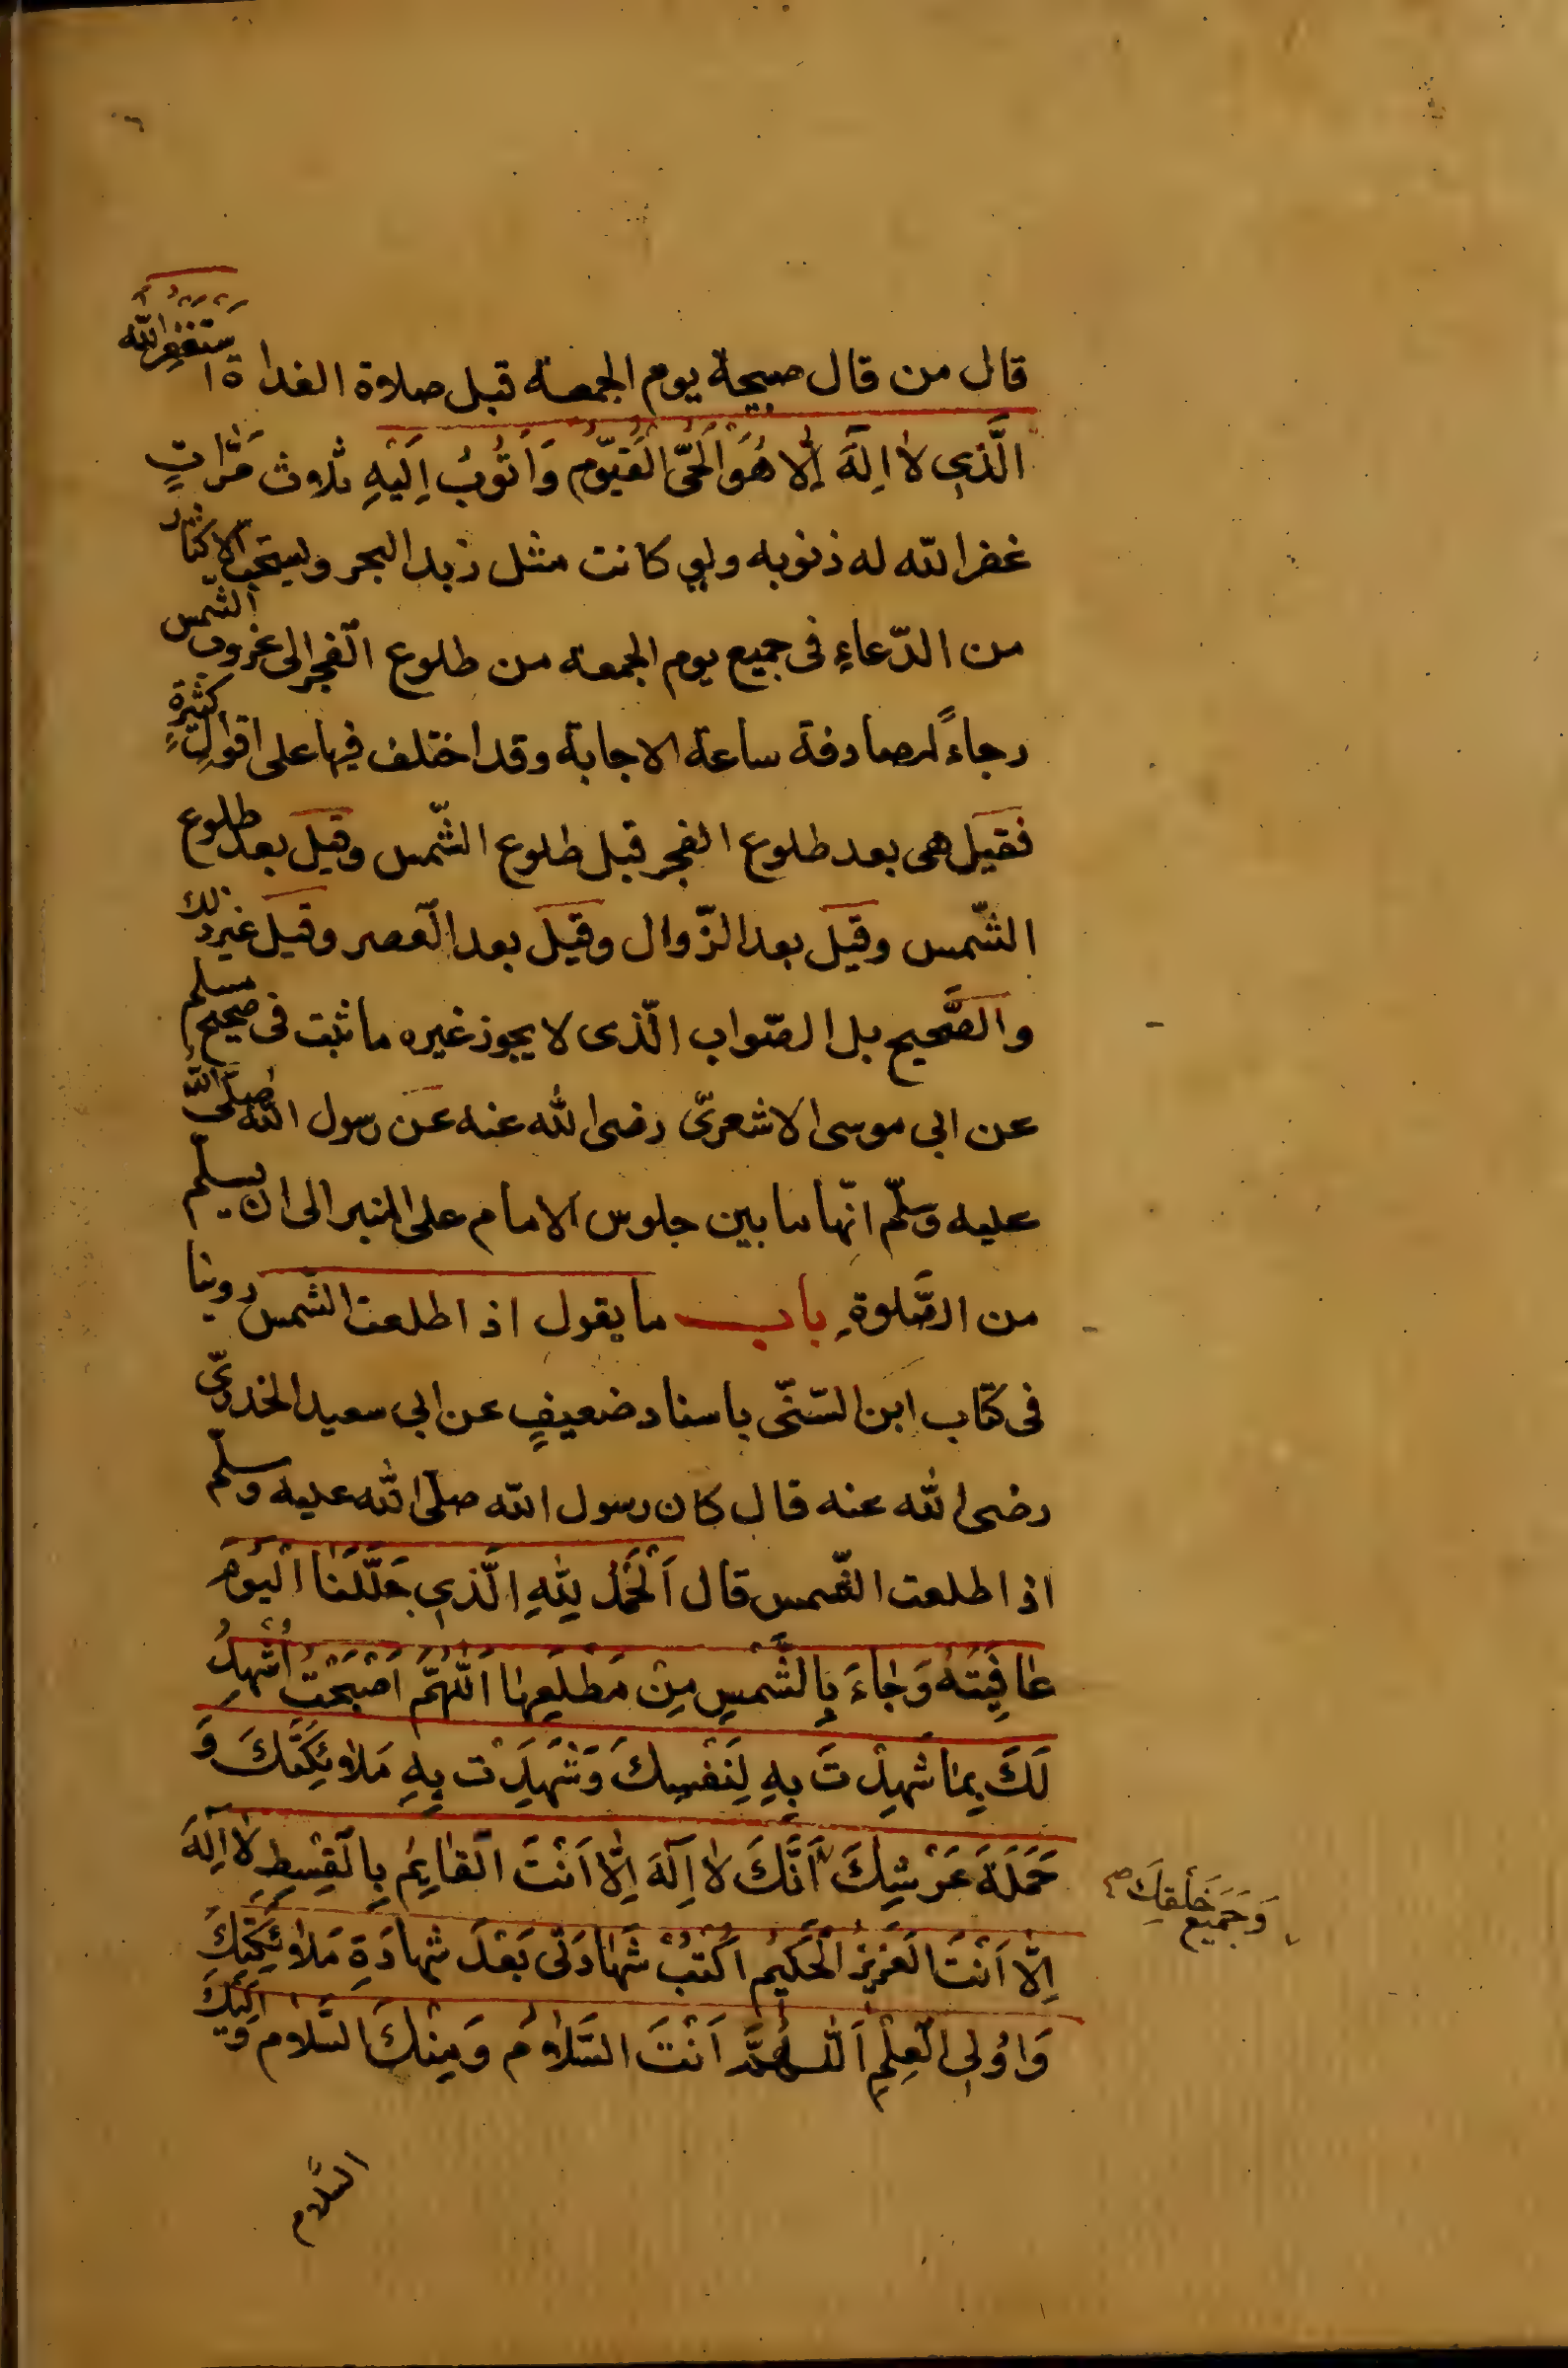 قال من قال صبيحة يوم الجمعة قبل صلاة الغداة استغفر الله
الَّذي لا اِلَهَ اِلّا هُوَ الْحَىّ الْقَيّوُم وَاَتُوبُ اِلَيْهِ ثلاوث مَرّاتٍ
غفر الله له ذنوبه ولو كانت مثل زبد البحر ويستحبّ الاكثار
من الدّعاءِ فى جميع يوم الجمعه من طلوع الفجر الى غروب الشّمس
رجاءً لمصادفة ساعة الاجابة وقد اختلف فيها على اقوالٍ كثيرةٍ
فقيل هى بعد طلوع الفجر قبل طلوع الشّمس وقيل بعد طلوع
الشّمس وقيل بعد الزّوال وقيل بعد العصر وقيل غير ذلك
والصَّحيح بل الصّواب الّذى لا يجوز غيره ما ثبت فى صحيح مسلم
عن ابى موسى الاشعرىّ رضى الله عنه عن رسول الله صلّى الله
عليه وسلّم انّها ما بين جلوس الامام على المنبر الى ان يسلّم
من الصَّلوةِ باب ما يقول اذا طلعت الشّمس روينا
فى كتاب ابن السّنّى باسناد ضعيفٍ عن ابى سعيد الخدرىّ
رضى الله عنه قال كان رسول الله صلّى الله عليه وسلّم
اذا طلعت الشّمس قال اَلْحَمْدُ لِلّهِ الَّذي جَلَّلَنا الْيَوْمَ
عافِيَتَهُ وَجاءَ بِالشَّمْسِ مِنْ مَطْلَعِها اَللّهُمَّ اَصْبَحْتُ اُشْهِدُ
لَكَ بِما شَهِدْتَ بِهِ لِنَفْسِكَ وَشَهِدَتْ بِهِ مَلاوئِكَتُكَ وَ
حَمَلَةُ عَرْشِكَ اَنَّكَ لا اِلَهَ اِلّا اَنْتَ الْقائِمُ بِالْقِسْطِ لا اِلَهَ
وَجَميعِ خَلْقِكَ صح
اِلّا اَنْتَ الْعَزيزُ الْحَكيمُ اُكْتُبْ شَهادَتى بَعْدَ شَهادَةِ مَلاوئِكَتِكَ
وَاُولِى الْعِلْمِ اَللّهُمَّ اَنْتَ السَّلاوُم وَمِنْكَ السَّلاوُم وَاِلَيْكَ
السّلاوم